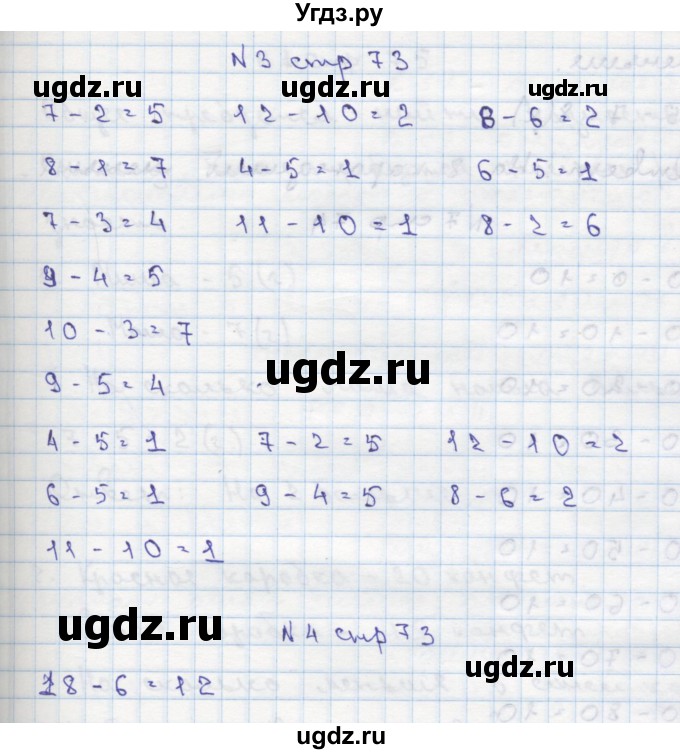 Угдз.ру
N 3 стр 73
ugdz.ru ugdz.ru ugdz.ru
7 - 2 = 5 12 - 10 = 2 8 - 6 = 2
8 - 1 = 7 4 - 5 = 1 6 - 5 = 1
7 - 3 = 4 11 - 10 = 1 8 - 2 = 6
9 - 4 = 5
10 - 3 = 7
ugdz.ru
9 - 5 = 4
4 - 5 = 1 7 - 2 = 5 12 - 10 = 2
6 - 5 = 1 9 - 4 = 5 8 - 6 = 2
11 - 10 = 1
ugdz.ru
N 4 стр 73
ugdz.ru
18 - 6 = 12
ugdz.ru